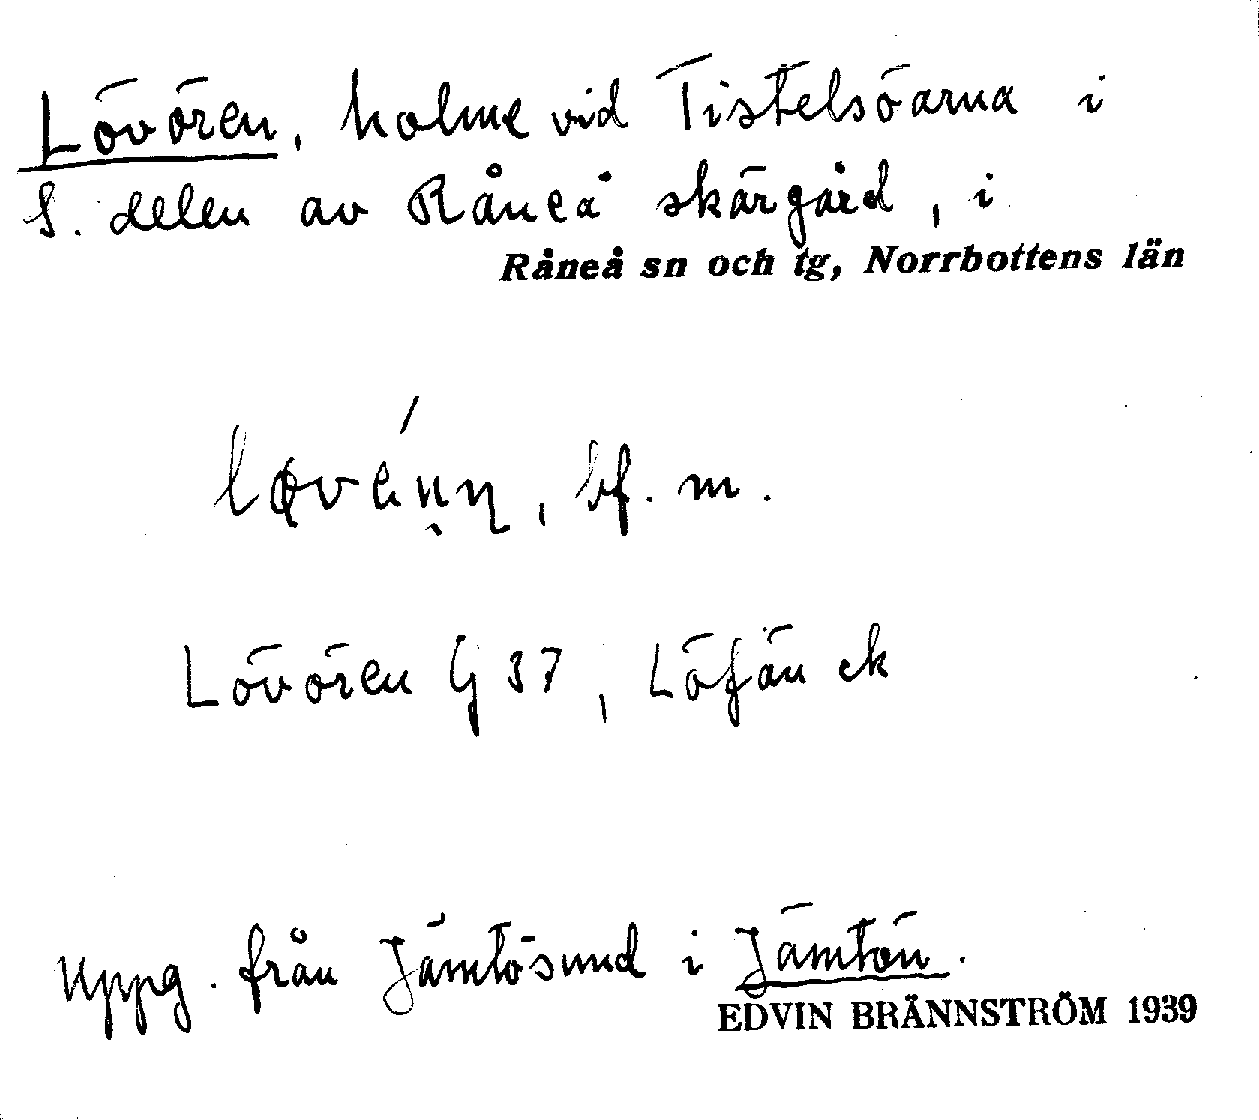 Lövören, holme vid Tistelsöarna i
S. delen av Råneå skärgård, i
Råneå sn och tg, Norrbottens län
bf. m.
Lövören G 37, Löfän ek
Uppg. från Jämtösund i Jämtön.
EDVIN BRÄNNSTRÖM 1939